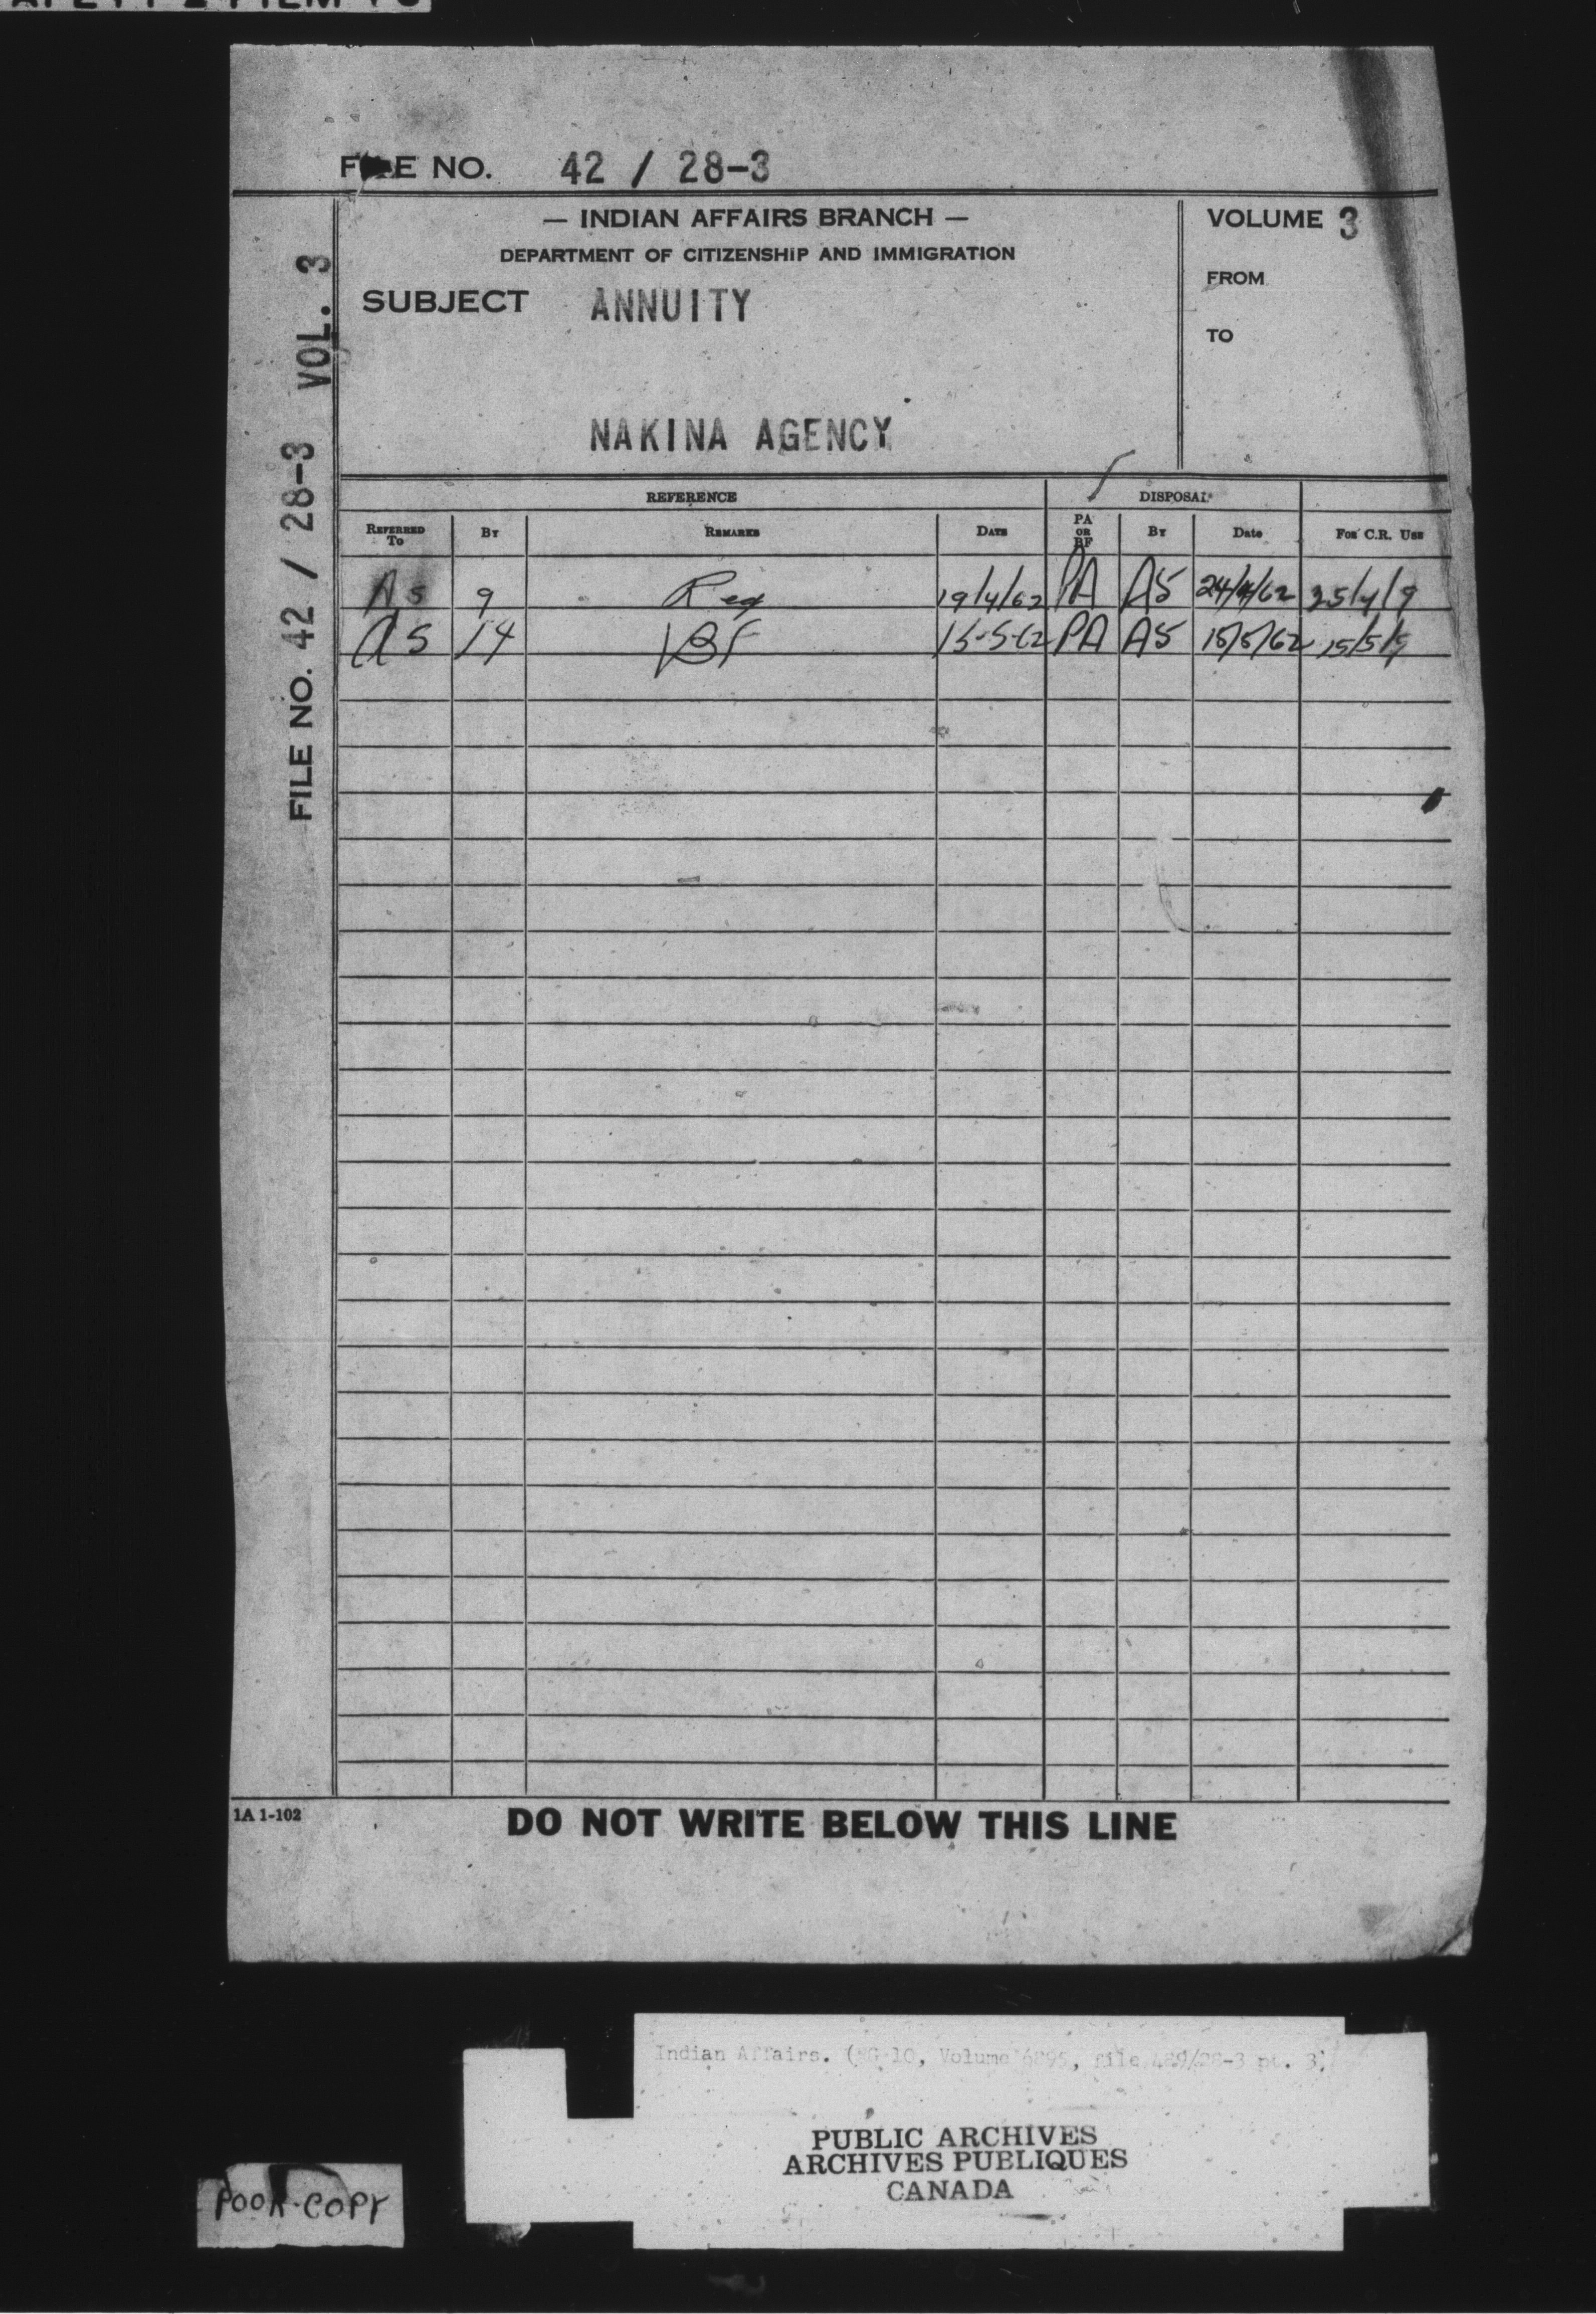 FILE NO. 42 / 28-3
— INDIAN AFFAIRS BRANCH —
DEPARTMENT OF CITIZENSHIP AND IMMIGRATION
SUBJECT ANNUITY
NAKINA AGENCY
VOLUME 3
FROM
TO
FILE NO. 42 / 28-3 VOL. 3
REFERENCE DISPOSAL
REFERRED TO BY REMARKS DATE PA OR BF BY Date FOR C.R. USE
AS 9 Req 19/4/62 PA AS 24/4/62 25/4/9
AS 14 BF 15-5-62 PA AS 15/5/62 15/5/9
1A 1-102
DO NOT WRITE BELOW THIS LINE
Indian Affairs. (RG 10, Volume 6895, file 489/28-3 pt. 3)
PUBLIC ARCHIVES
ARCHIVES PUBLIQUES
CANADA
POOR COPY